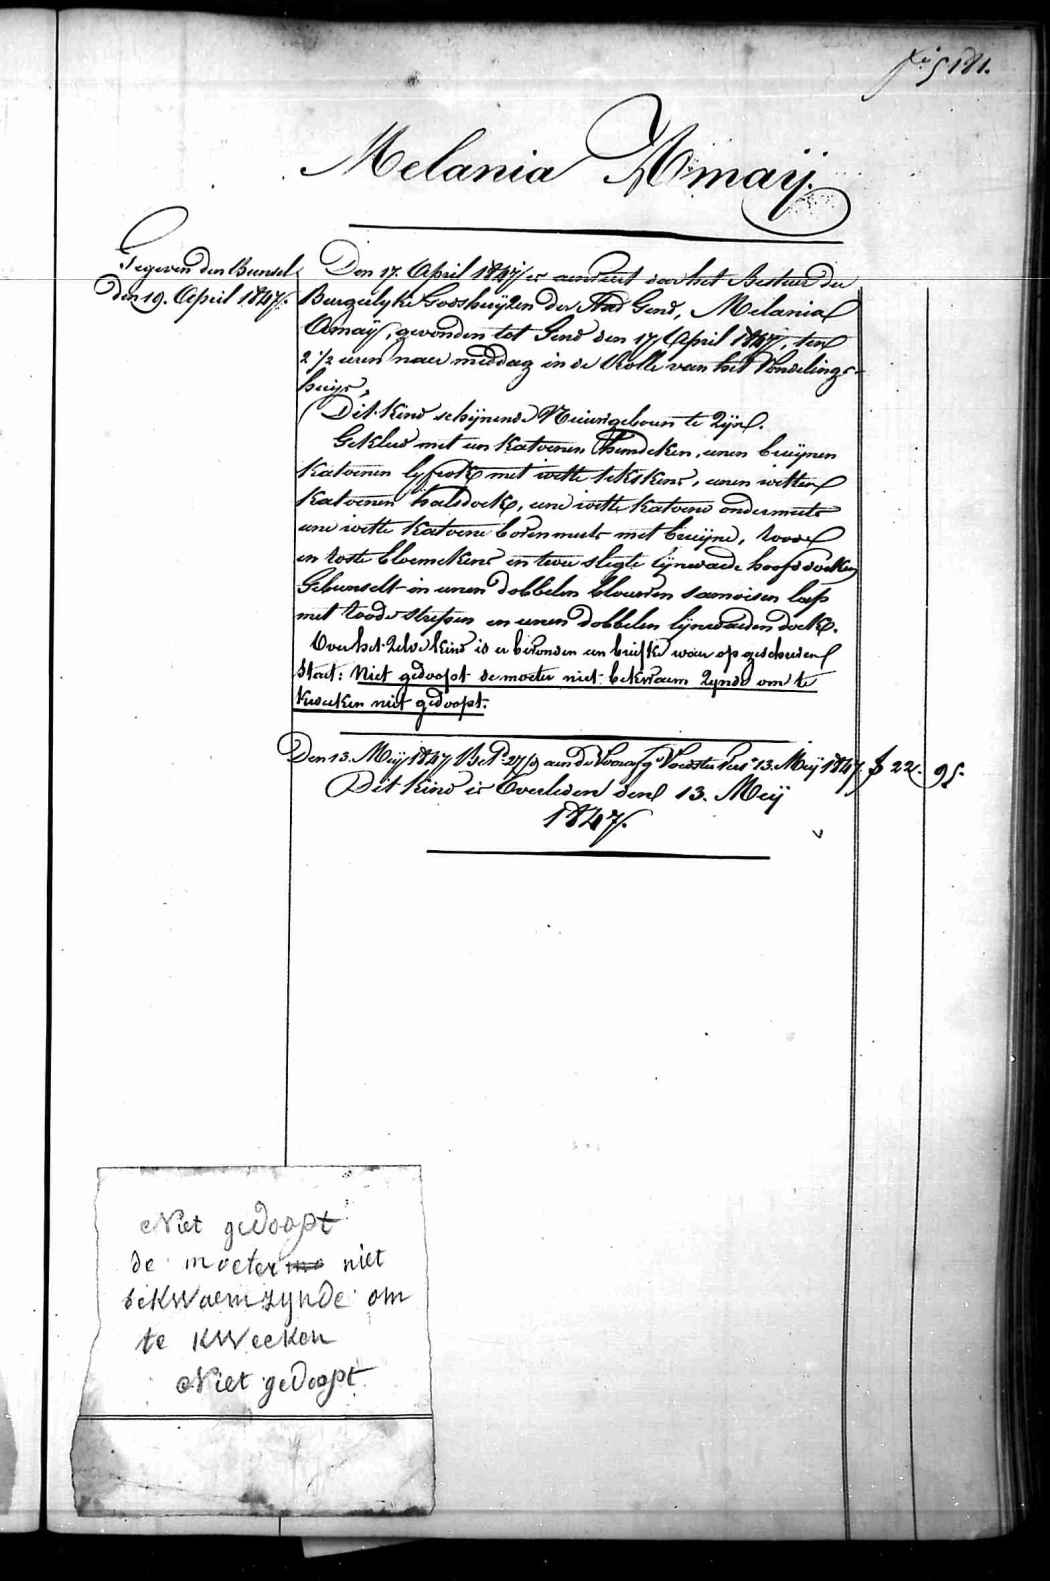 f° 5181.
Melania Amaij.
Gegeven den Bunsel
den 19. April 1847.
Den 17. April 1847 is aenveert door het Bestuur der
Burgerlyke Godshuijzen der Stad Gend, Melania
Amaij, gevonden tot Gend den 17 April 1847, ten
2 1/2 uren naer middag in de Rolle van het Vondelings-
huijs,
Dit Kind schijnende Nieuwgeboren te Zijn.
Gekleed met een Katoenen Hemdeken, eenen bruijnen
Katoenen lyfrok met witte tekskens, eenen witten
Katoenen halsdoek, eene witte Katoene ondermuts
eene witte Katoene bovenmuts met bruijne, roode
en roste bloemekens en twee slegte lijnwaede hoofdoeken
Gebunselt in eenen dobbelen blauwen samoisen lap
met roode strepen en eenen dobbelen lijnwaeden doek.
Over het Zelve kind is er bevonden een briefke waer op geschreven
staet: Niet gedoopt de moeder niet bekwaem Zynde om te
kweeken niet gedoopt.
Den 13. Meij 1847 aen de Voedster 13. Meij 1847 22. 95.
Dit kind is Overleden den 13. Meij
1847.
Niet gedoopt
de moeter niet
bekwaem zynde om
te kweeken
Niet gedoopt